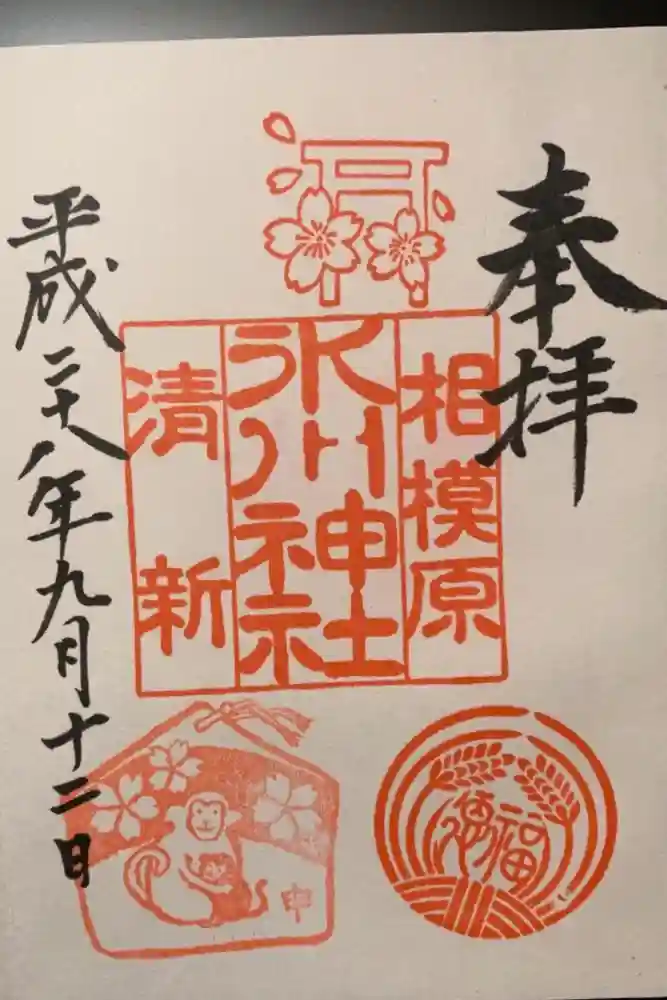 奉拝
相模原
氷川神社
清新
平成二十八年九月十二日
申
福徳